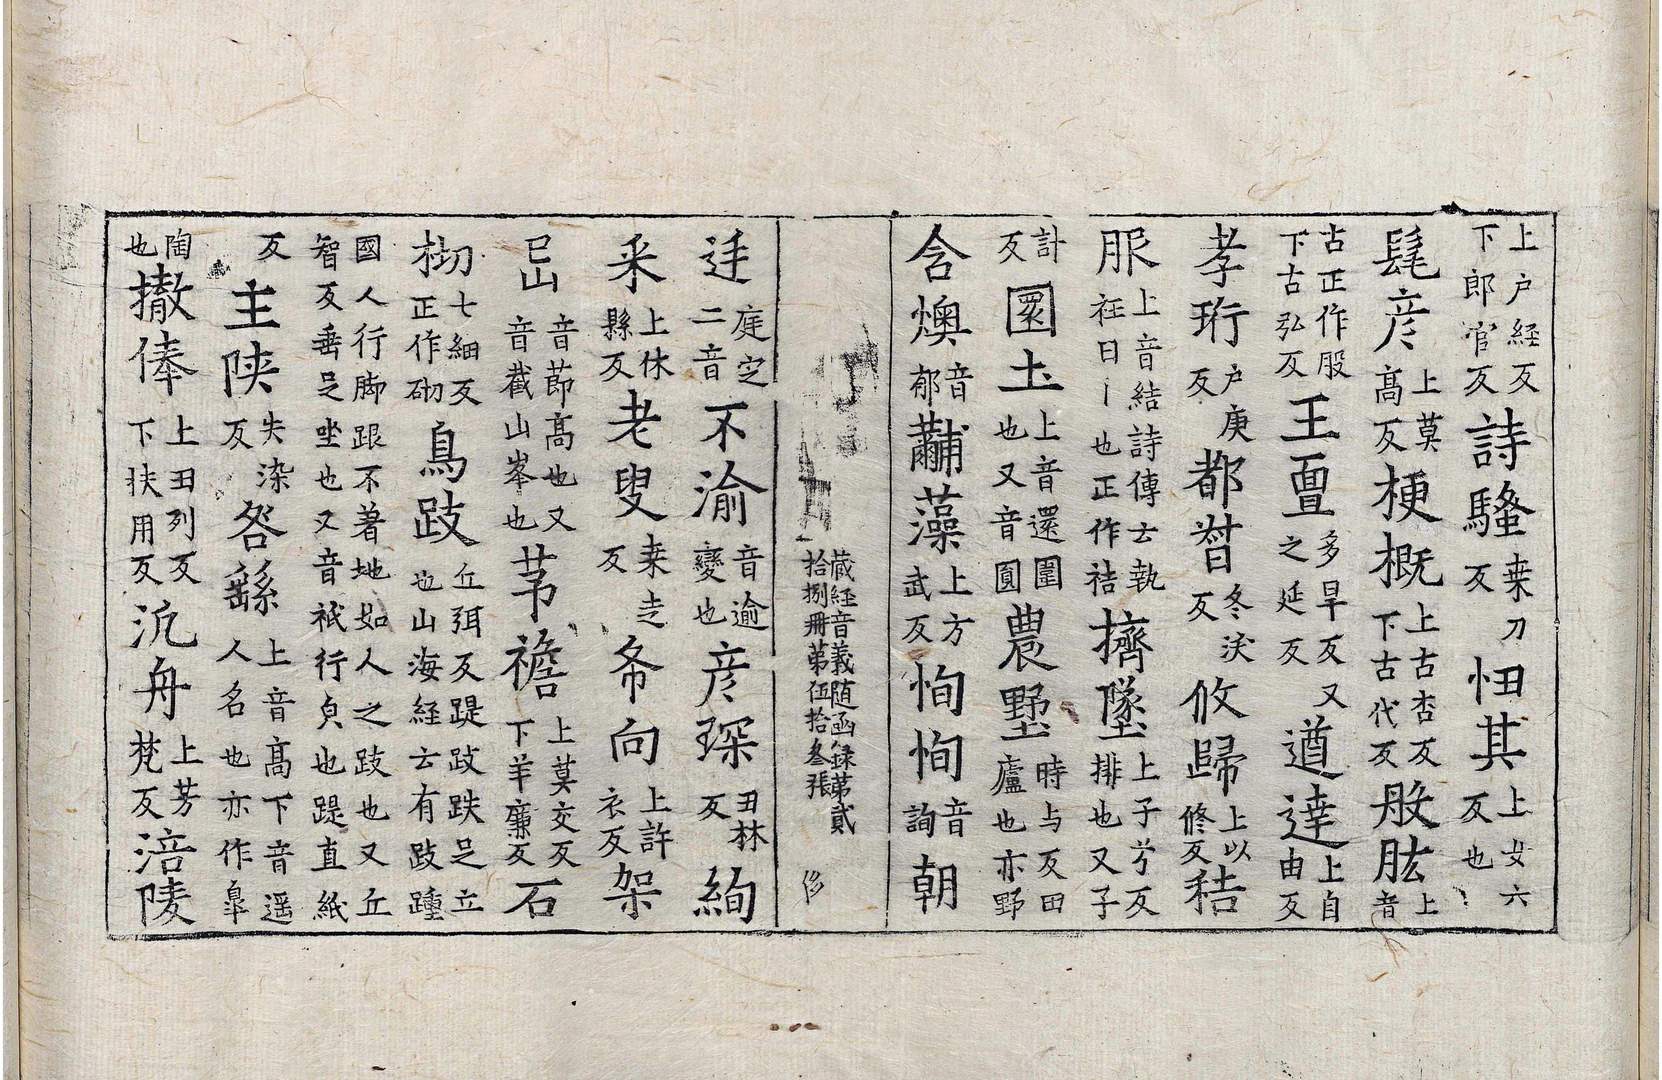 上户経反下郎官反詩騷桒刀反忸其上女六反也
髦彦上莫髙反梗概上古杏反下古代反般肱上音
古正作股下古弘反王亶多旱反又之延反遒達上自由反
孝珩户庚反都督冬沃反攸歸上以修反秸
服上音結詩傳云執衽曰丨也正作袺擠墜上子兮反排也又子
計反圜土上音還圍也又音圓農墅時与反田廬也亦野
含燠音郁黼藻上方武反恂恂音詢朝
蔵経音義随函録第貳拾捌冊第伍拾叁張 侈
廷庭定二音不渝音逾變也彦琛丑林反絢
采上休縣反老叟桒走反希向上許衣反架
音節髙也又音截山峯也茅襜上莫交反下羊廉反石
𣐀七細反正作砌鳥跂丘弭反踶跂跌足立也山海経云有跂踵
國人行脚跟不著地如人之跂也又丘智反垂足坐也又音祇行皃也踶直紙
反主陝失染反咎繇上音髙下音遥人名也亦作皐
陶也撤俸上丑列反下扶用反汎舟上芳梵反涪陵